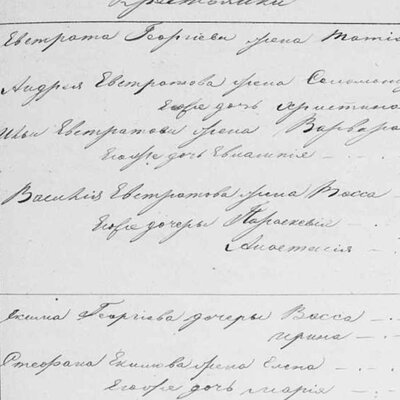 Крестьяне
Евстрата Георгіева жена
Андрея Евстратова жена Соломони
Егоже дочь Христина
Ильи Евстратова жена Варвара
Егоже дочь Евлампия
Василія Евстратова жена Васса
Егоже дочеры Параскевія
Анастасія
Екима Георгіева дочеры Васса
Ирина
Стефана Екимова жена Елена
Егоже дочь Марія